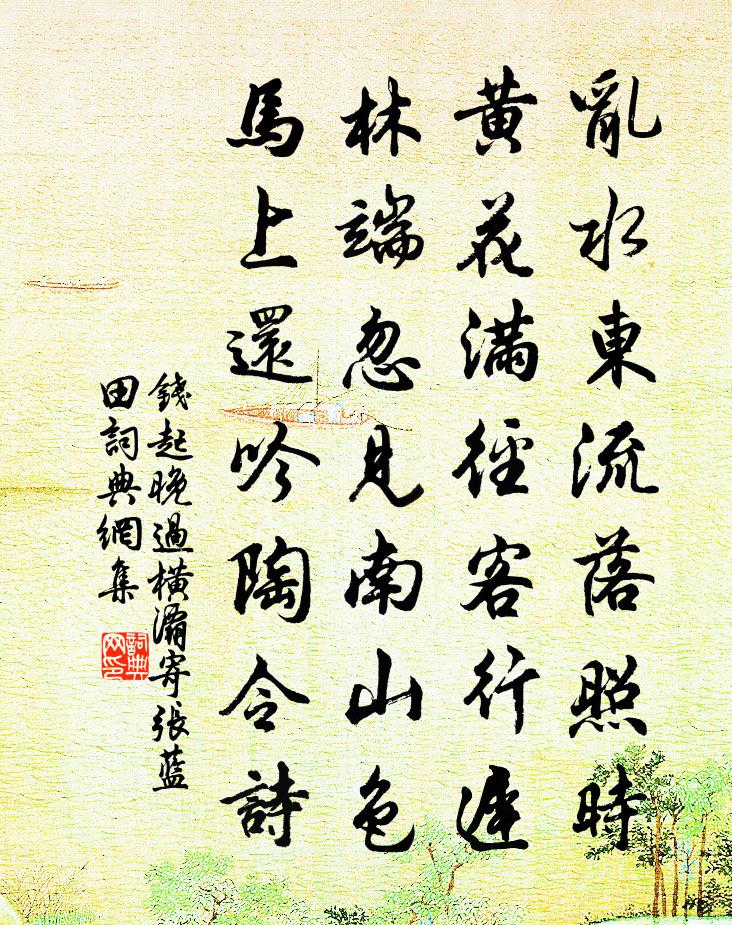 亂水東流落照時
黃花滿徑客行遲
林端忽見南山色
馬上還吟陶令詩
錢起晚過橫灞寄張藍
田詞典網集
詞典网印